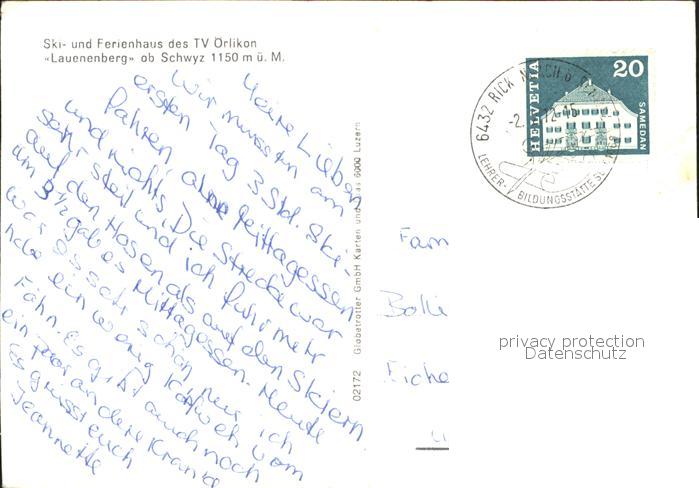 Ski- und Ferienhaus des TV Örlikon
«Lauenenberg» ob Schwyz 1150 m ü. M.
Meine Lieben
Wir mussten am
ersten Tag 3 Std. Ski-
fahren, ohne Mittagessen
und nichts. Die Strecke war
sehr steil und ich fuhr mehr
auf den Hosen als auf den Skiern
um 3½ gab es Mittagessen. Heute
war es sehr schön nur ich
habe ein wenig Kopfweh vom
Föhn. Es gibt auch noch
ein paar andere Kranke
Es grüsst euch
Jeannette
02172 Globetrotter GmbH Karten und 6000 Luzern
HELVETIA
20
SAMEDAN
6432 RICK
-2.
LEHRER-
BILDUNGSSTÄTTE
Fam
Bolli
Eiche
privacy protection
Datenschutz